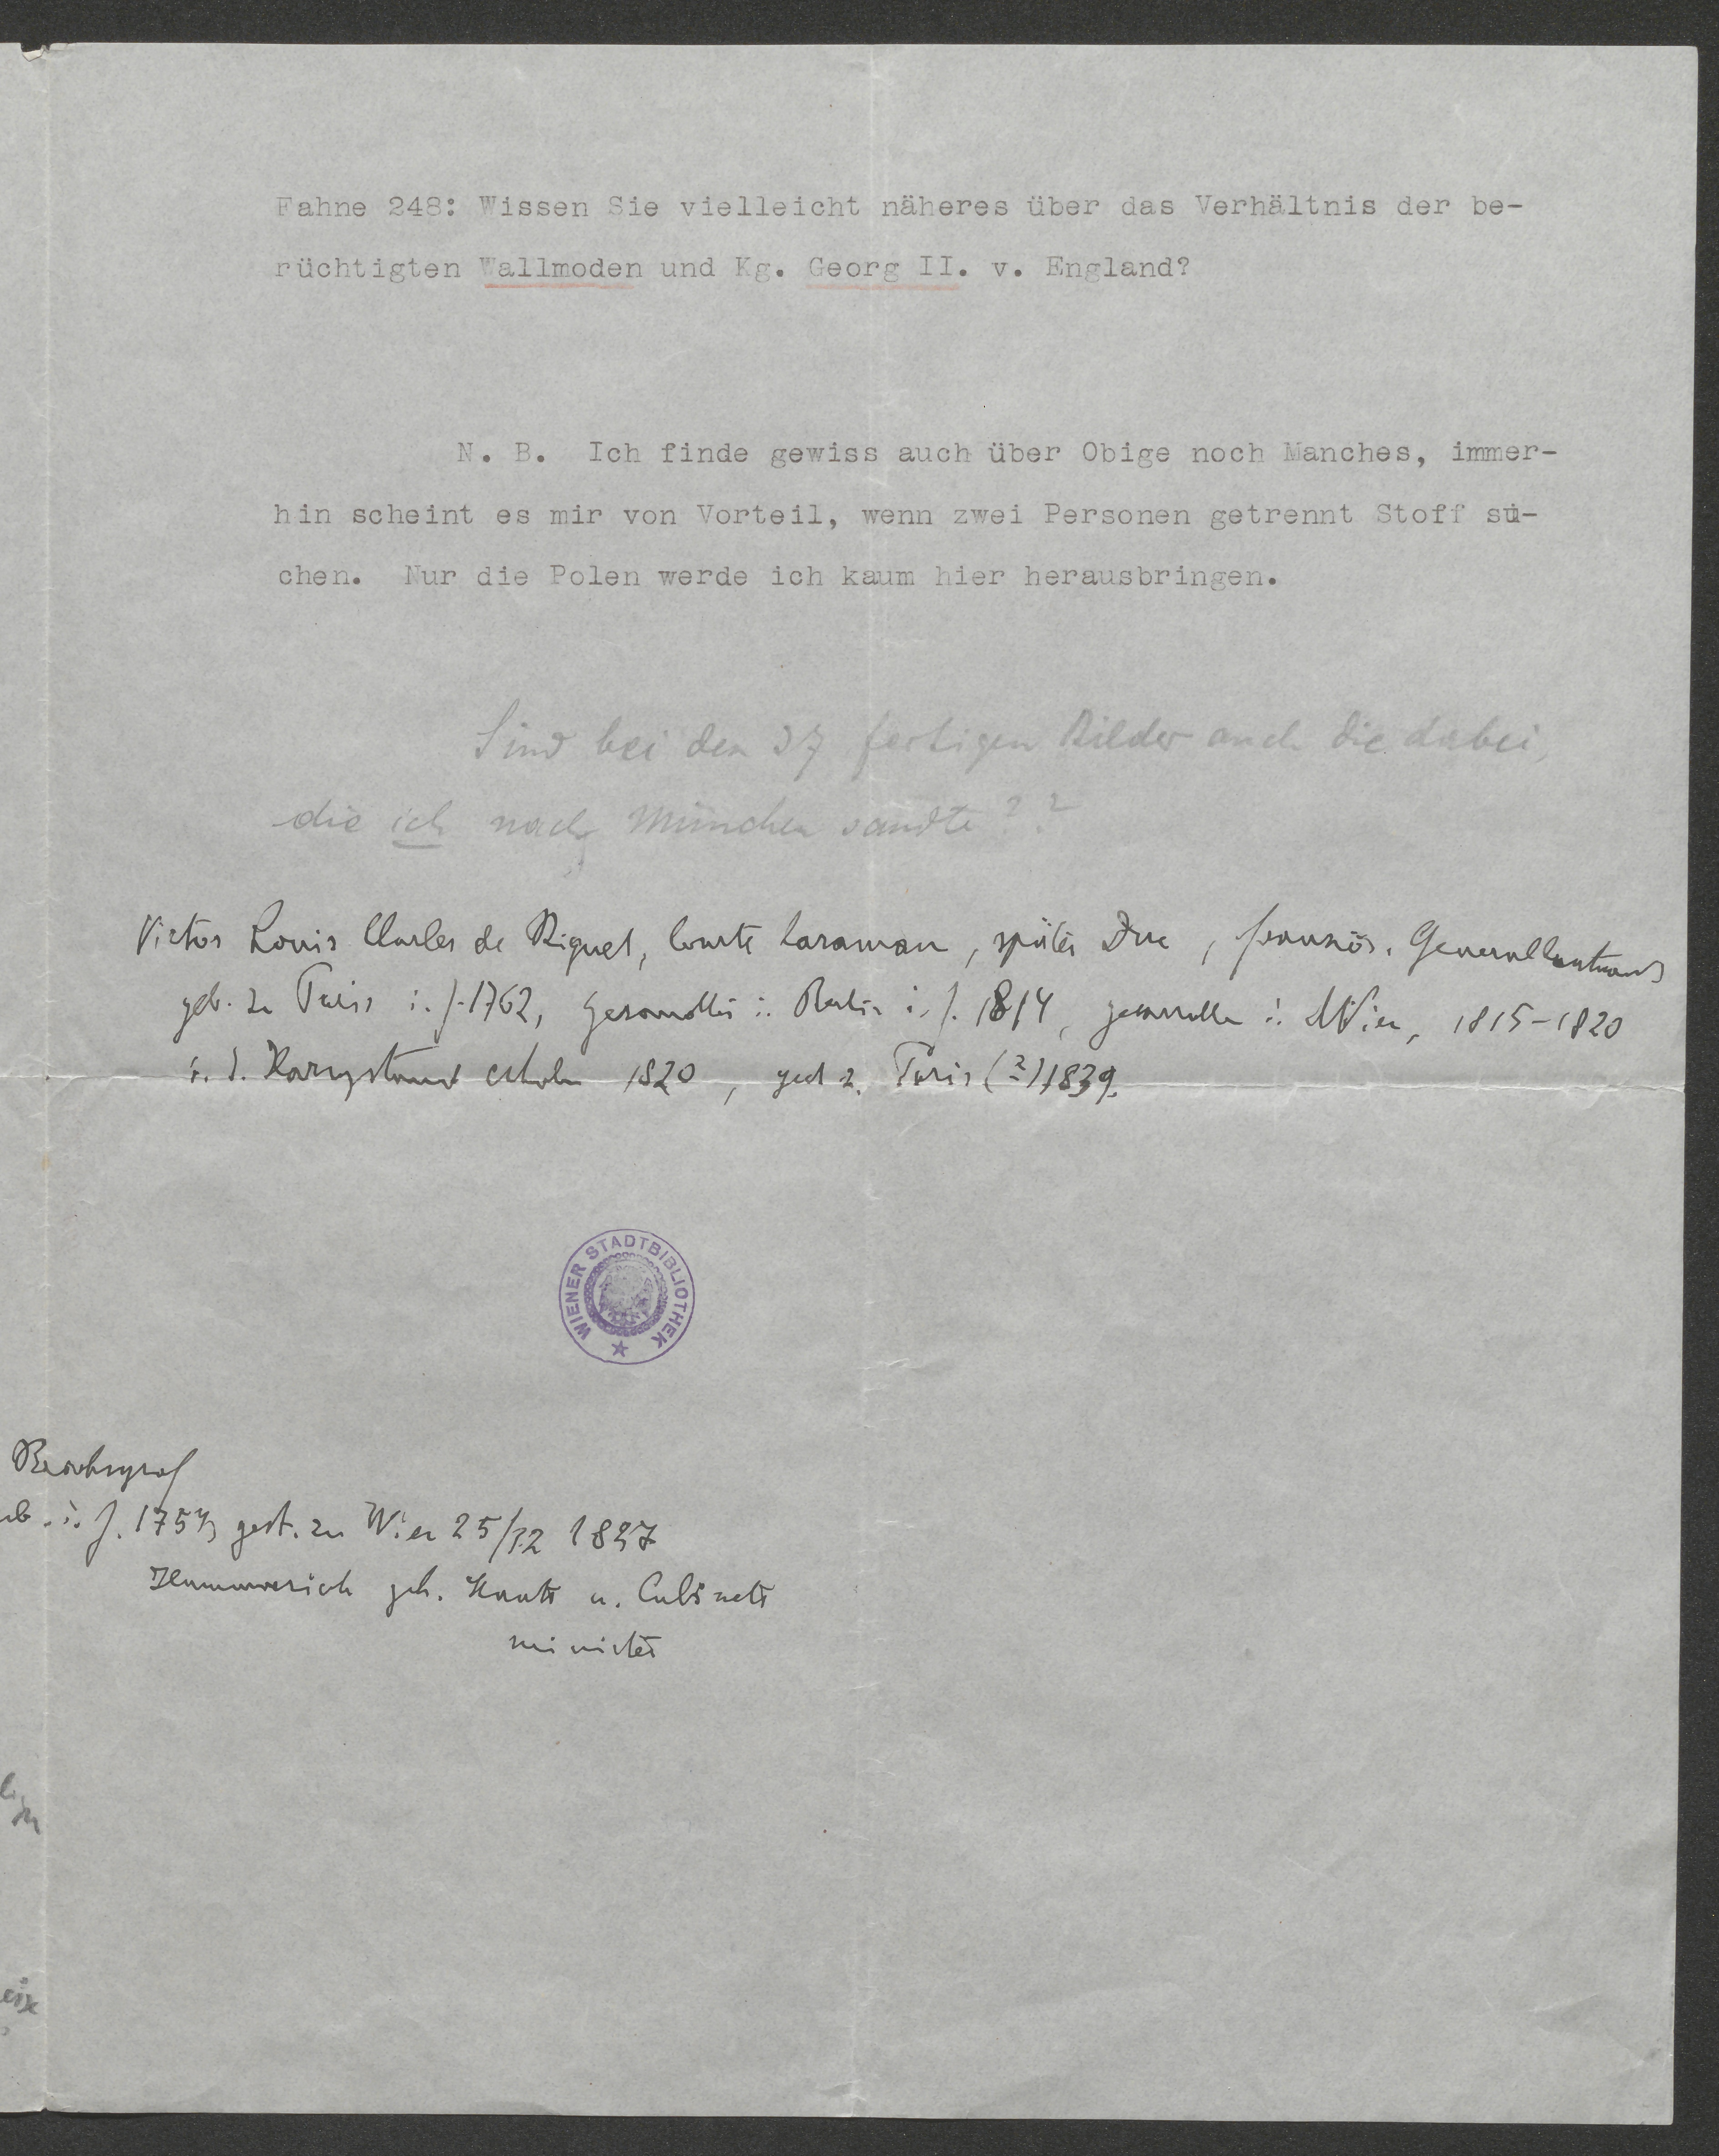 Fahne 248: Wissen Sie vielleicht näheres über das Verhältnis der be-
rüchtigten Wallmoden und Kg. Georg II. v. England?
N. B. Ich finde gewiss auch über Obige noch Manches, immer-
hin scheint es mir von Vorteil, wenn zwei Personen getrennt Stoff su-
chen. Nur die Polen werde ich kaum hier herausbringen.
Sind bei den 37 fertigen Bilder auch die dabei,
die ich nach München sandte??
Victor Louis Charles de Riquet, Comte Caraman, später Duc, französ. Generalleutnant
geb. zu Paris i. J. 1762, Gesandter i. Berlin i. J. 1814, gesandter i. Wien, 1815-1820
i. d. erhoben 1820, gest z. Paris (?) 1839.
WIENER STADTBIBLIOTHEK
Reichsgraf
i. J. 175 gest. zu Wien 25/12 1837
geh. u. Cabinets
minister